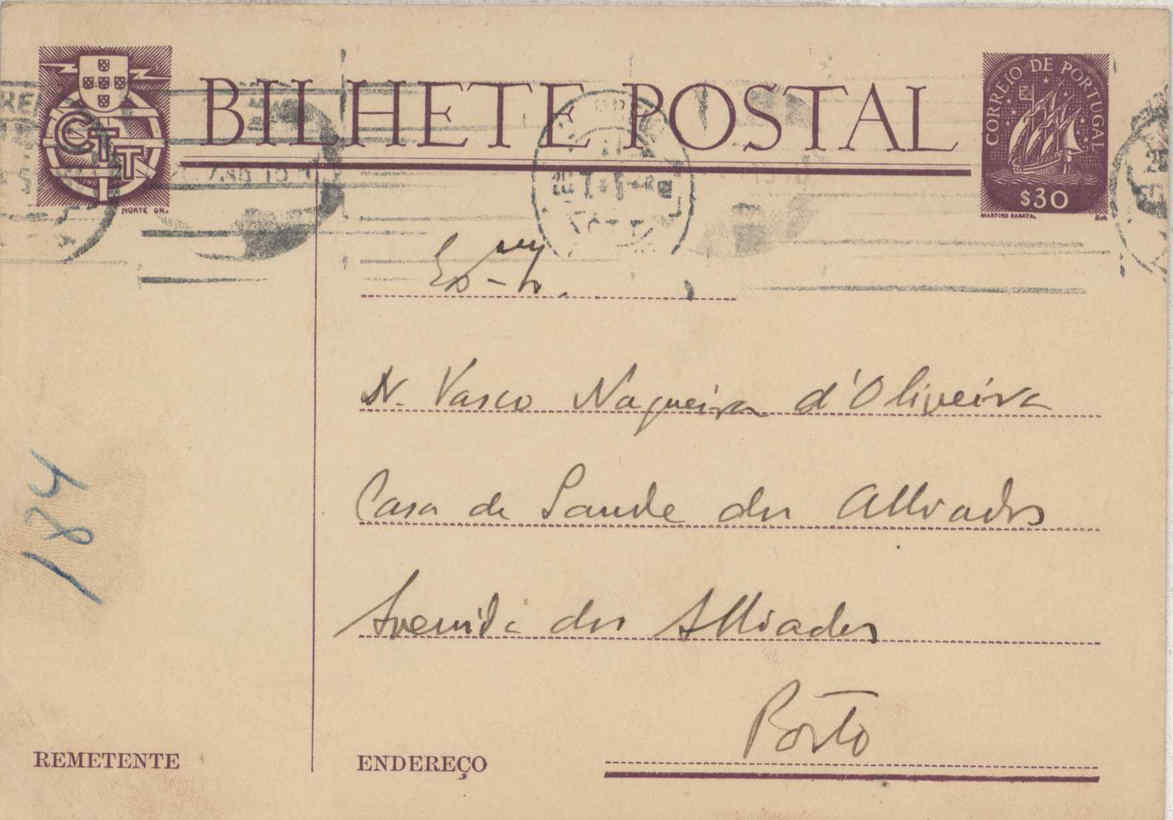 BILHETE POSTAL
CTT
NORTE GR.
CORREIO DE PORTUGAL
$30
MARTINS BARATA
Ex-mo.
Vasco Nogueira d'Oliveira
Casa de Saude dos Alliados
Avenida dos Alliados
Porto
184
REMETENTE
ENDEREÇO